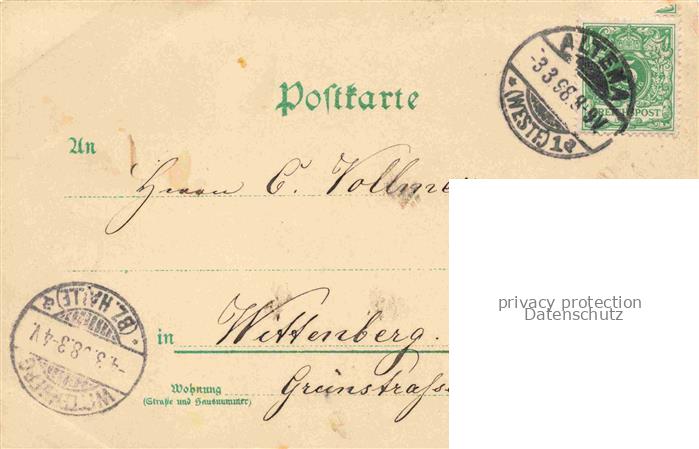 Postkarte
ALTENA
3 3 98. 8-9V.
* (WESTF.) 1a
REICHSPOST
An
Herrn C. Vollme
privacy protection
Datenschutz
* (BZ. HALLE) a
4.3.98.3-4V.
WITTENBERG
in Wittenberg.
Wohnung Grünstrasse
(Straße und Hausnummer)